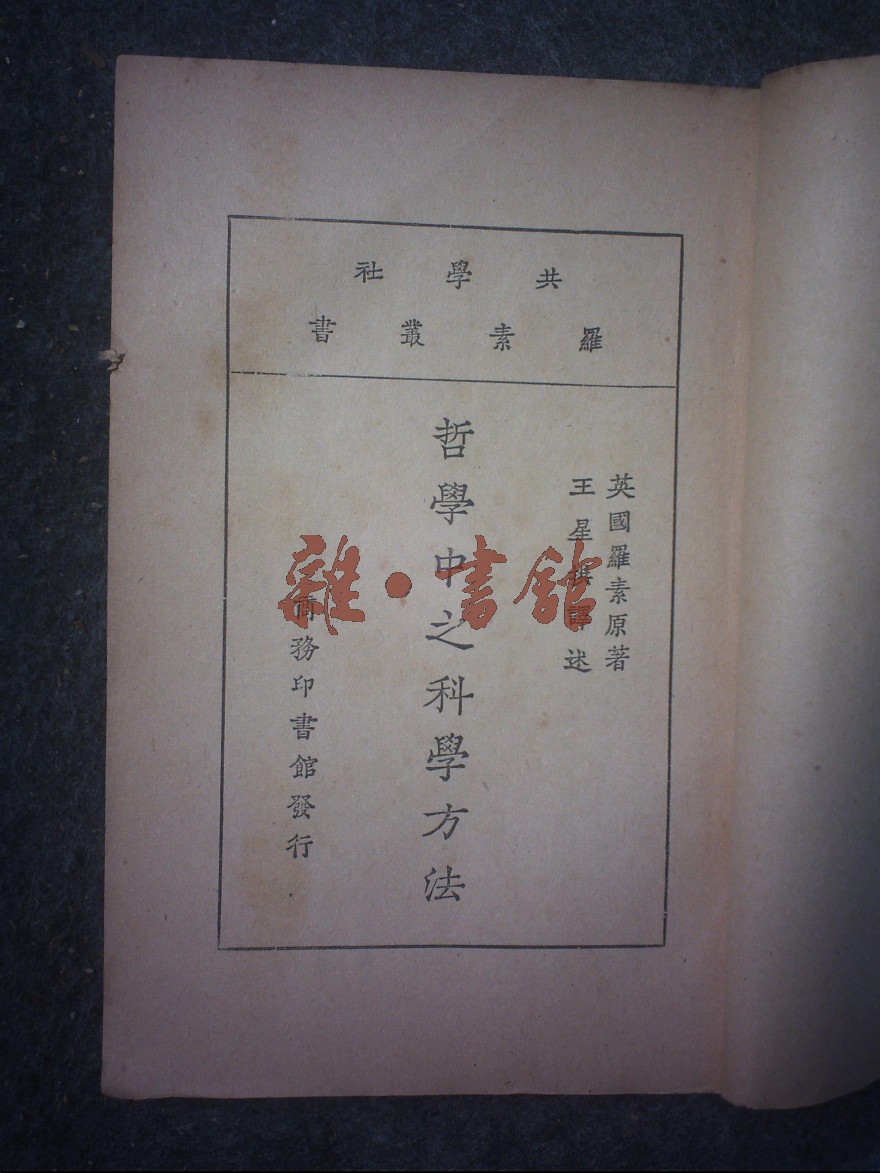 共學社
羅素叢書
英國羅素原著
王星拱譯述
哲學中之科學方法
商務印書館發行
雜·書館